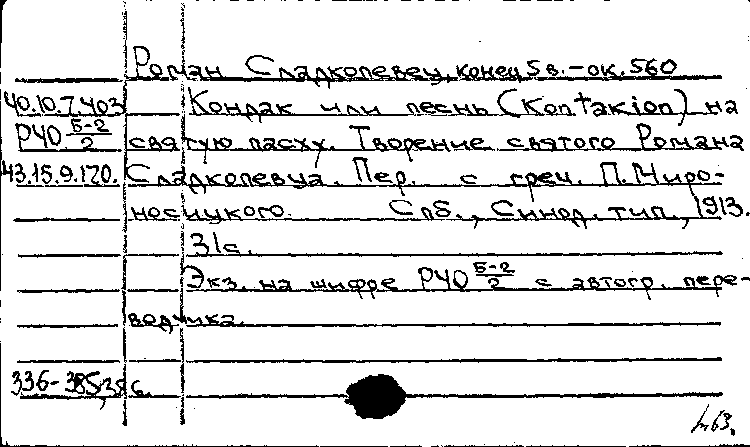 Роман Сладкопевец, конец 5 в. – ок. 560
40.10.7.403 Кондак или песнь (Kontakion) на
РЧО Б-2/2 святую пасху. Творение святого Романа
43.15.9.170. Сладкопевца. Пер. с греч. П. Миро-
носицкого. Спб., Синод. тип., 1913.
31с.
Экз. на шифре РЧО Б-2/2 с автогр. пере-
водчика.
336-385
63.